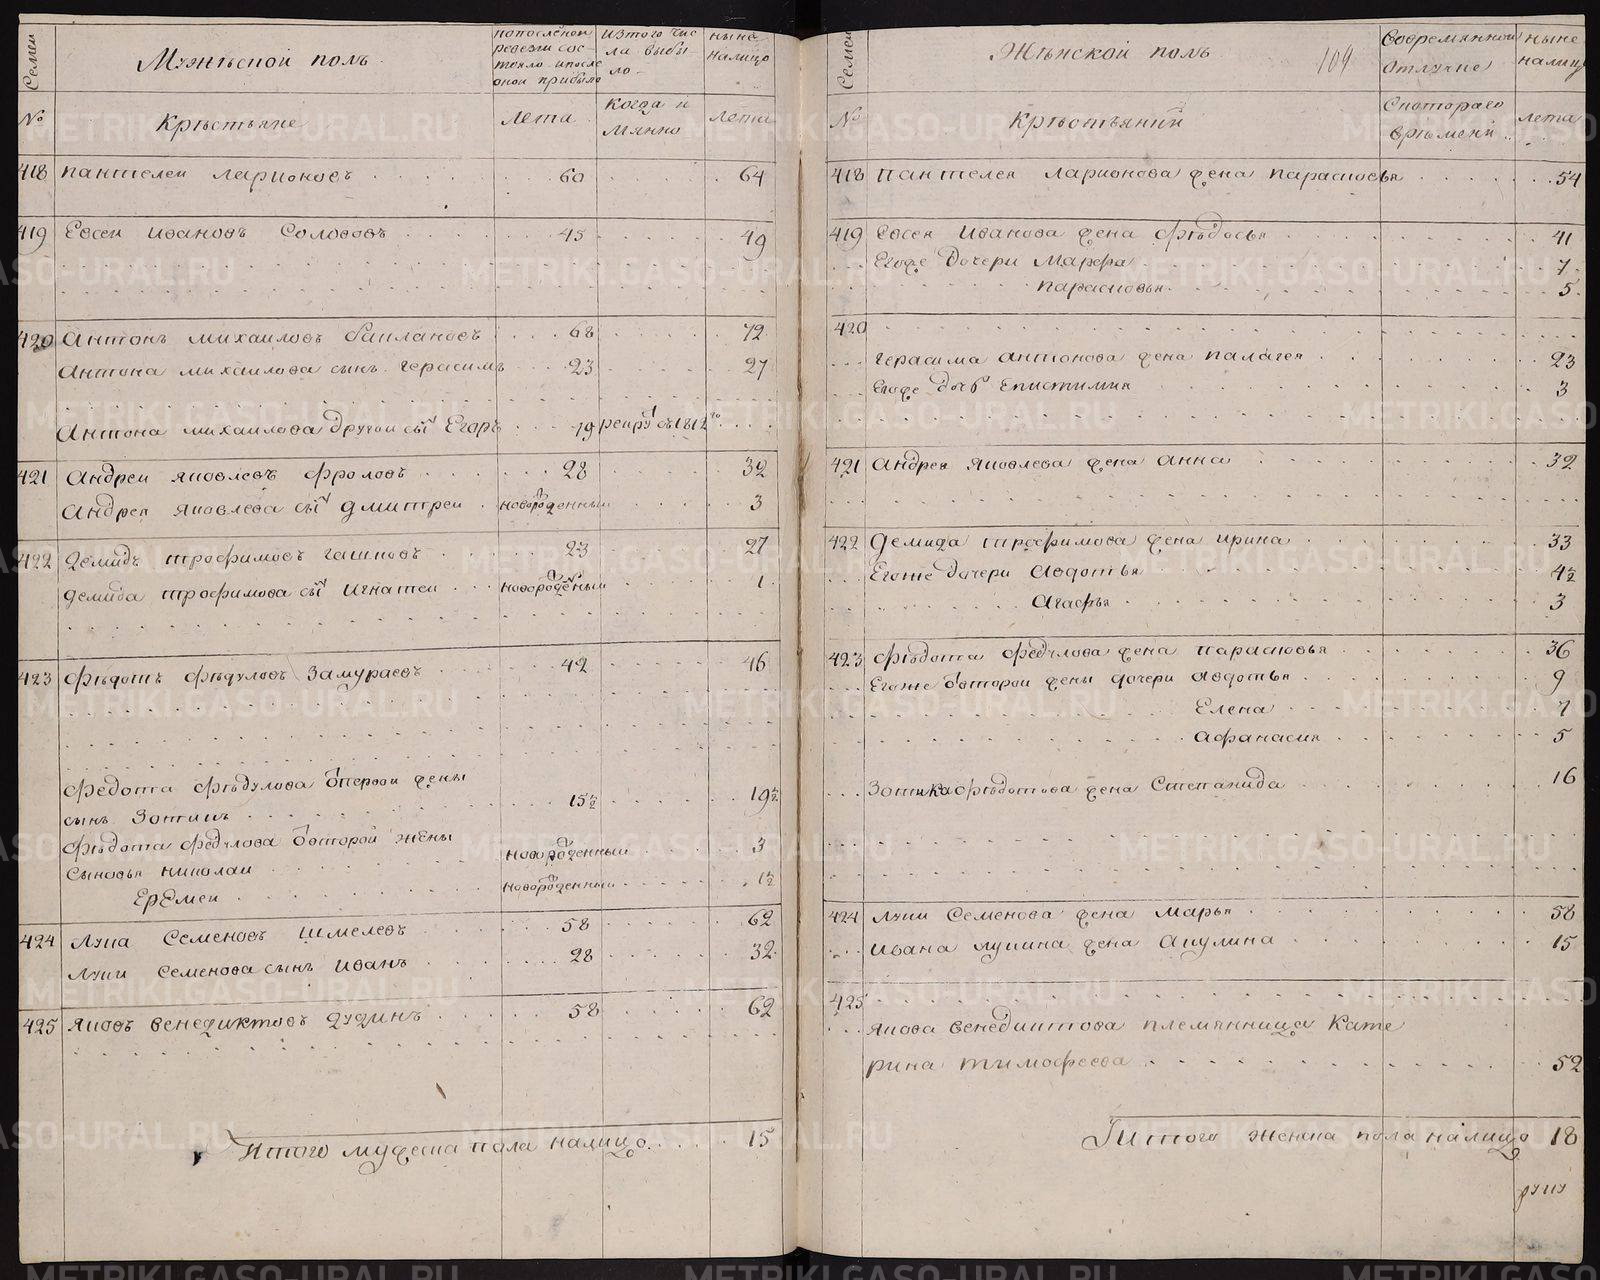 Семеи
Мужеской полъ
попоследней
ревезги сос-
тояло ипосле
оной прибыло
изтого чис
ла выбы
ло
ныне
налицо
№
Крестьяне
лета
когда и
лета
418 пантелеи ларионовъ 60 64
419 Евсеи ивановъ Соловьевъ 45 49
420 Антонъ михаиловъ баклановъ 68 72
Антона михаилова сынъ герасимъ 23 27
Антона михаилова другои сынъ Егоръ 19 рекру въ 1812го
421 Андреи яковлевъ фроловъ 28 32
Андрея яковлева сынъ дмитреи новорожденныи 3
422 демидъ трофимовъ гашковъ 23 27
демида трофимова сынъ игнатеи новорожденыи 1
423 фѣдотъ фѣдуловъ Замураевъ 42 46
федота фѣдулова отпервои жены
сынъ Зотикъ 15½ 19½
фѣдота федулова отвторой жены
Сыновья николаи новорожденныи 3
ЕрЕмеи новорожденныи 1½
424 Лука Семеновъ шмелевъ 58 62
луки Семенова сынъ иванъ 28 32
425 яковъ венедиктовъ дудинъ 58 62
Итого мужеска пола налицо 15
Семеи
Женской полъ
104
Вовремянной
отлучке
ныне
налицо
№
Крестьянки
Скоторого
времени
лета
418 Пантелея ларионова жена парасковья 54
419 Евсея Иванова жена фѣдосья 41
Егоже дочери марфа 7
парасковья 5
420
герасима антонова жена палагея 23
Егоже дочь Епистимия 3
421 Андрея яковлева жена анна 32
422 демида трофимова жена ирина 33
Егоже дочери авдотья 4½
Агафья 3
423 фѣдота федулова жена парасковья 36
Егоже отвторои жены дочери авдотья 9
Елена 7
афанасия 5
Зотика фѣдотова жена Степанида 16
424 луки Семенова жена марья 58
ивана лукина жена акулина 15
425
якова венедиктова племянница кате
рина тимофеева 52
Итого женска пола налицо 18
руку
METRIKI.GASO-URAL.RU